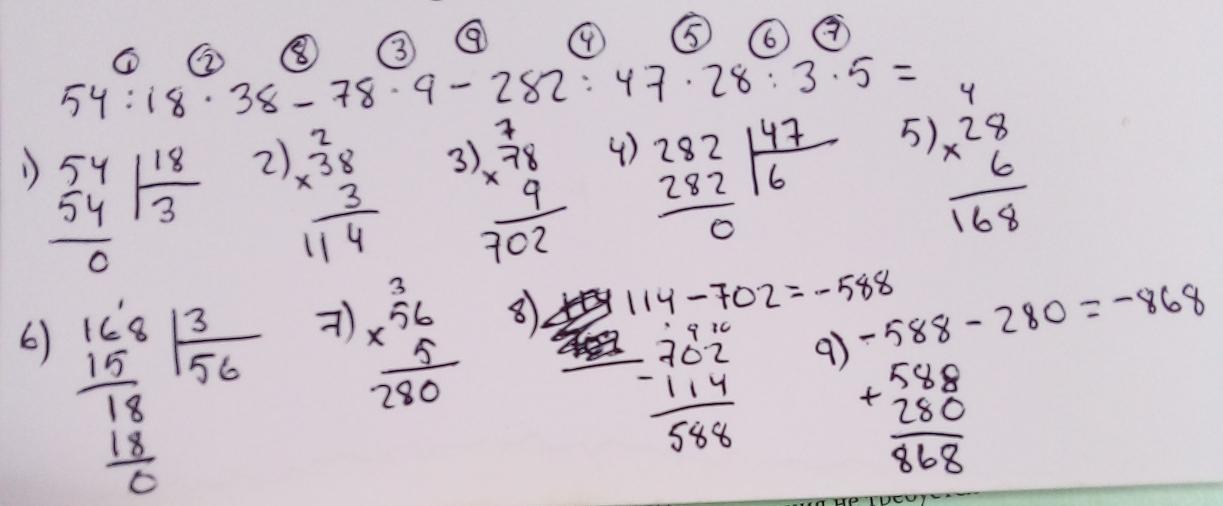 ① ② ⑧ ③ ⑨ ④ ⑤ ⑥ ⑦
54 : 18 · 38 - 78 · 9 - 282 : 47 · 28 : 3 · 5 =
1) 54 | 18
54 | 3
0
2) 2
× 38
3
114
3) 7
× 78
9
702
4) 282 | 47
282 | 6
0
5) 4
× 28
6
168
6) 168 | 3
15 | 56
18
18
0
7) 3
× 56
5
280
8) 114 - 702 = -588
9 10
- 702
114
588
9) -588 - 280 = -868
+ 588
280
868
не требуется